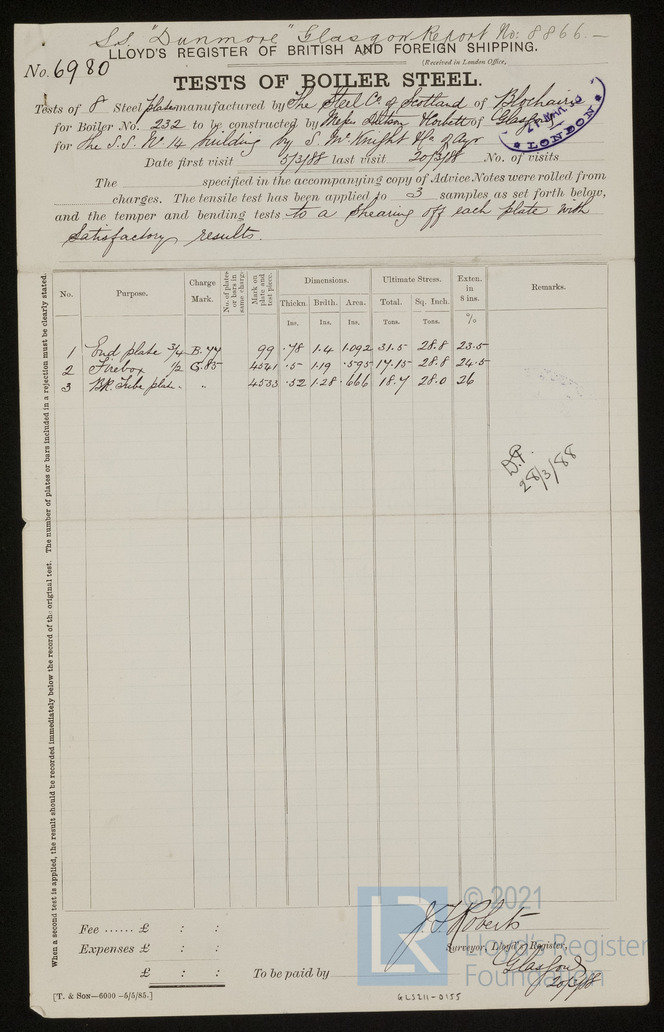 S.S. "Dunmore" Glasgow Report No: 8866 –
LLOYD'S REGISTER OF BRITISH AND FOREIGN SHIPPING.
No. 6980
(Received in London Office,
TESTS OF BOILER STEEL.
LONDON
Tests of 8 Steel plates manufactured by The Steel Co. of Scotland of Blochairn
for Boiler No. 232 to be constructed by Messrs of Glasgow
for the S.S. No 14 building by S. McKnight & Co. of Ayr
Date first visit 5/3/88 last visit 20/3/88 No. of visits
The specified in the accompanying copy of Advice Notes were rolled from
charges. The tensile test has been applied to 3 samples as set forth below,
and the temper and bending tests to a shearing off each plate with
satisfactory results.
No. Purpose. Charge Mark. No. of plates or bars in same charge. Mark on plate and test piece. Dimensions. Ultimate Stress. Exten. in 8 ins. Remarks.
Thickn. Brdth. Area. Total. Sq. Inch.
Ins. Ins. Ins. Tons. Tons. %
1 End plate 3/4 B.77 99 .78 1.4 1.092 31.5 28.8 23.5
2 Firebox 1/2 G.85 4541 .5 1.19 .595 17.15 28.8 24.5
3 Bk. Tube plate. " 4533 .52 1.28 .666 18.7 28.0 26
28/3/88
When a second test is applied, the result should be recorded immediately below the record of the original test. The number of plates or bars included in a rejection must be clearly stated.
Fee ...... £ : :
Expenses £ : :
£ : :
To be paid by
J. F. Roberts
Surveyor, Lloyd's Register,
Glasgow
20/3/88
[T. & SON—6000—5/5/85.]
GLS211-0155
LR
© 2021
Lloyd's Register
Foundation